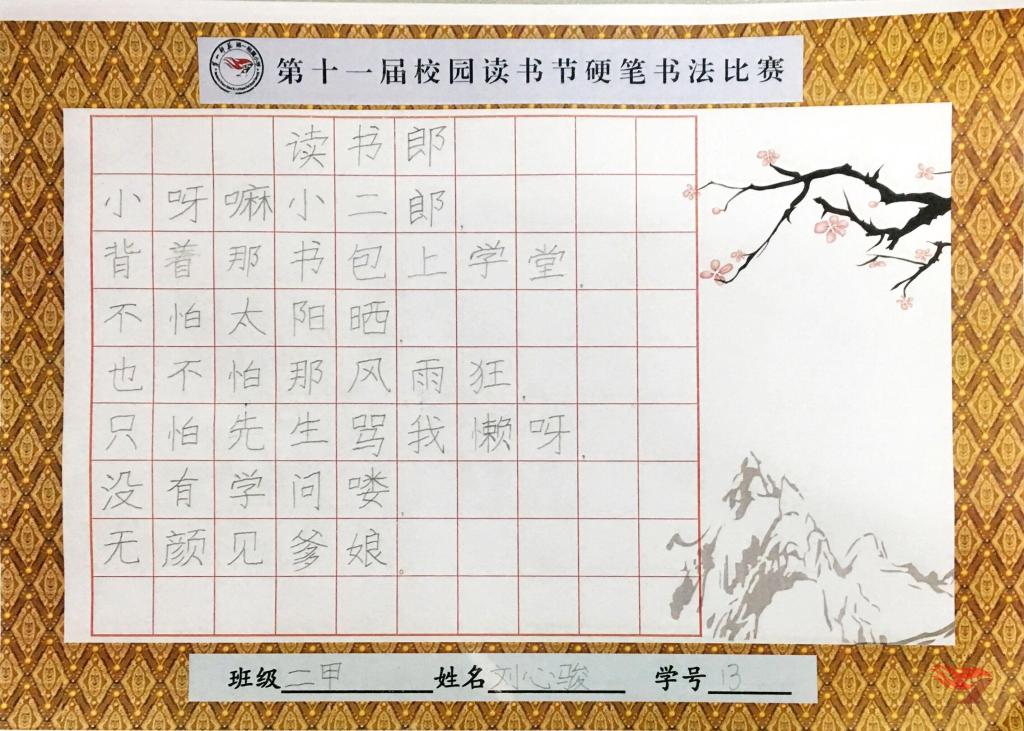 第十一届校园读书节硬笔书法比赛
读书郎
小呀嘛小二郎,
背着那书包上学堂.
不怕太阳晒,
也不怕那风雨狂,
只怕先生骂我懒呀,
没有学问喽,
无颜见爹娘。
班级二甲 姓名刘心骏 学号13